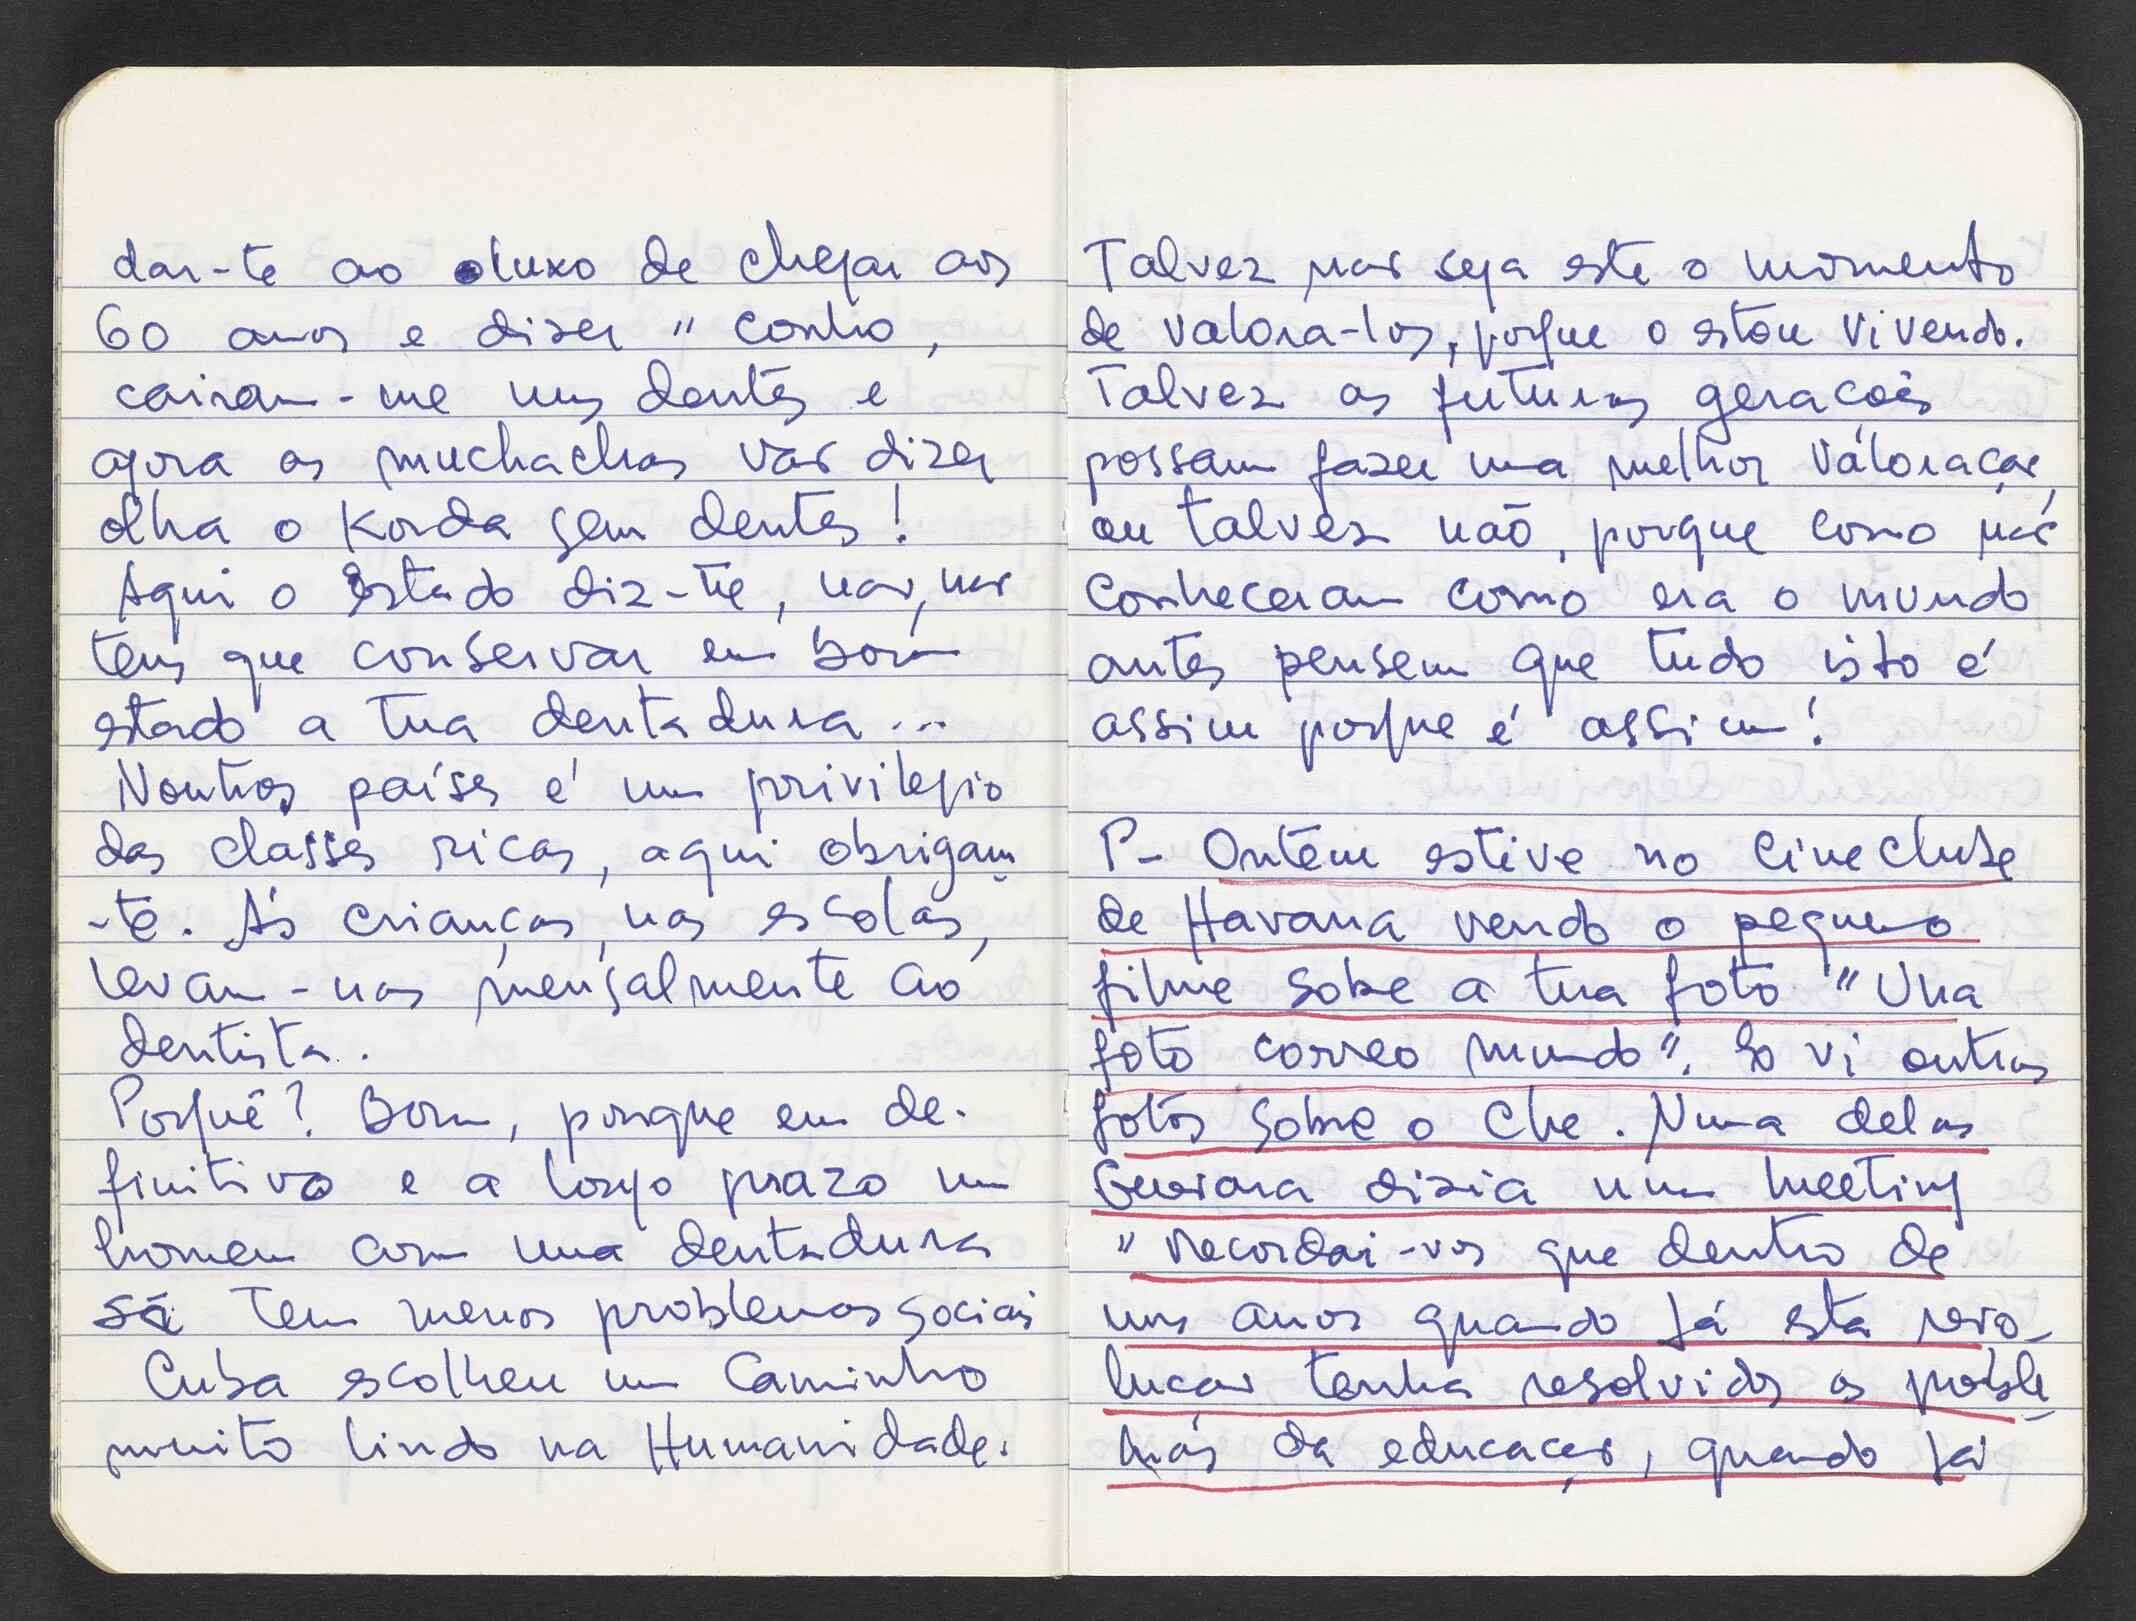 dar-te ao luxo de chegar aos
60 anos e dizer "conho,
cairam-me uns dentes e
agora os muchachos vão dizer
olha o Korda sem dentes!
Aqui o Estado diz-te, não, não
tens que conservar em bom
estado a tua dentadura...
Noutros países é um privilegio
das classes ricas, aqui obrigam
-te. Ás crianças, nas escolas,
levam-nas mensalmente ao
dentista.
Porquê? Bom, porque em de-
finitivo e a longo prazo um
homem com uma dentadura
sã tem menos problemas sociais
Cuba escolheu um Caminho
muito lindo na Humanidade.
Talvez não seja este o momento
de valora-los, porque o estou vivendo.
Talvez as futuras gerações
possam fazer uma melhor valoração,
ou talvez não, porque como não
conheceram como era o mundo
antes pensem que tudo isto é
assim porque é assim!
P- Ontem estive no Cineclube
de Havana vendo o pequeno
filme sobre a tua foto "Una
foto correo mundo". Eo vi outras
fotos sobre o Che. Numa delas
Guevara dizia num meeting
"recordai-vos que dentro de
uns anos quando já esta revo-
lucão tenha resolvidos os proble-
mas da educação, quando já